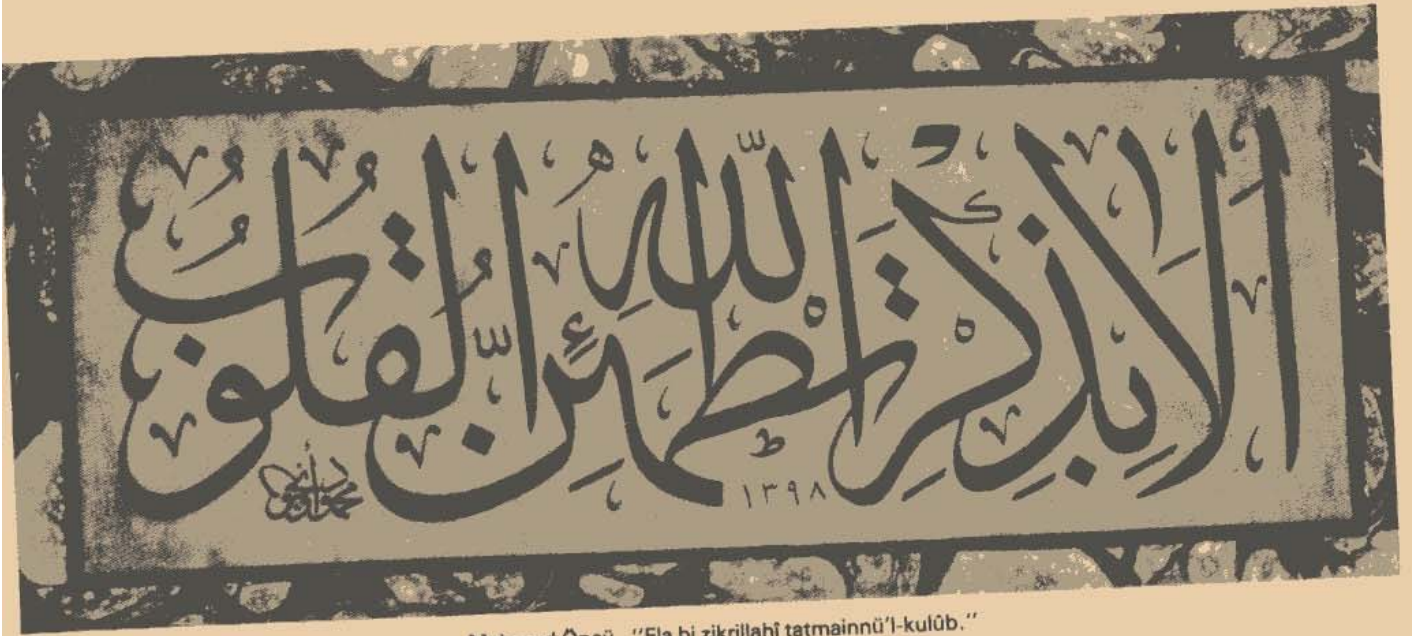 أَلَا بِذِكْرِ اللّٰهِ تَطْمَئِنُّ الْقُلُوبُ
١٣٩٨
Öncü "Ela bi zikrillahî tatmainnü'l-kulûb."